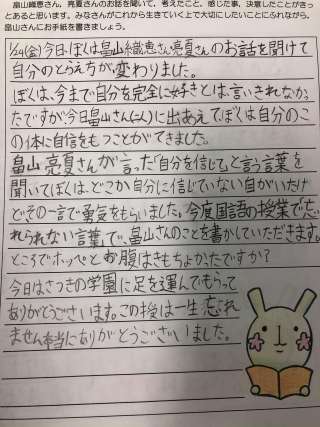 畠山織恵さん、亮夏さんのお話を聞いて、考えたこと、感じた事、決意したことがきっ
とあると思います。みなさんがこれから生きていく上で大切にしたいことにふれながら、
畠山さんにお手紙を書きましょう。
1/24(金)今日、ぼくは畠山織恵さん、亮夏さんのお話を聞けて
自分のとらえちが、変わりました。
ぼくは、今まで自分を完全に好きとは、言いきれなか。
たですが今日畠山さん(二人)に出あえてぼくは自分のこ
の体に自信をもつことができました。
畠山亮夏さんが言った「自分を信じて」と言う言葉を
聞いてぼくは、どこか自分に信じていない自分がいたけ
どその一言で勇気をもらいました。今度国語の授業で忘
れられない言葉で、畠山さんのことを書かしていただきます。
ところでホッペとお腹はきもちよかったですか?
今日はさつきの学園に足を運んでもらって
ありがとうございます。この授は一生忘れ
ません本当にありがとうございました。